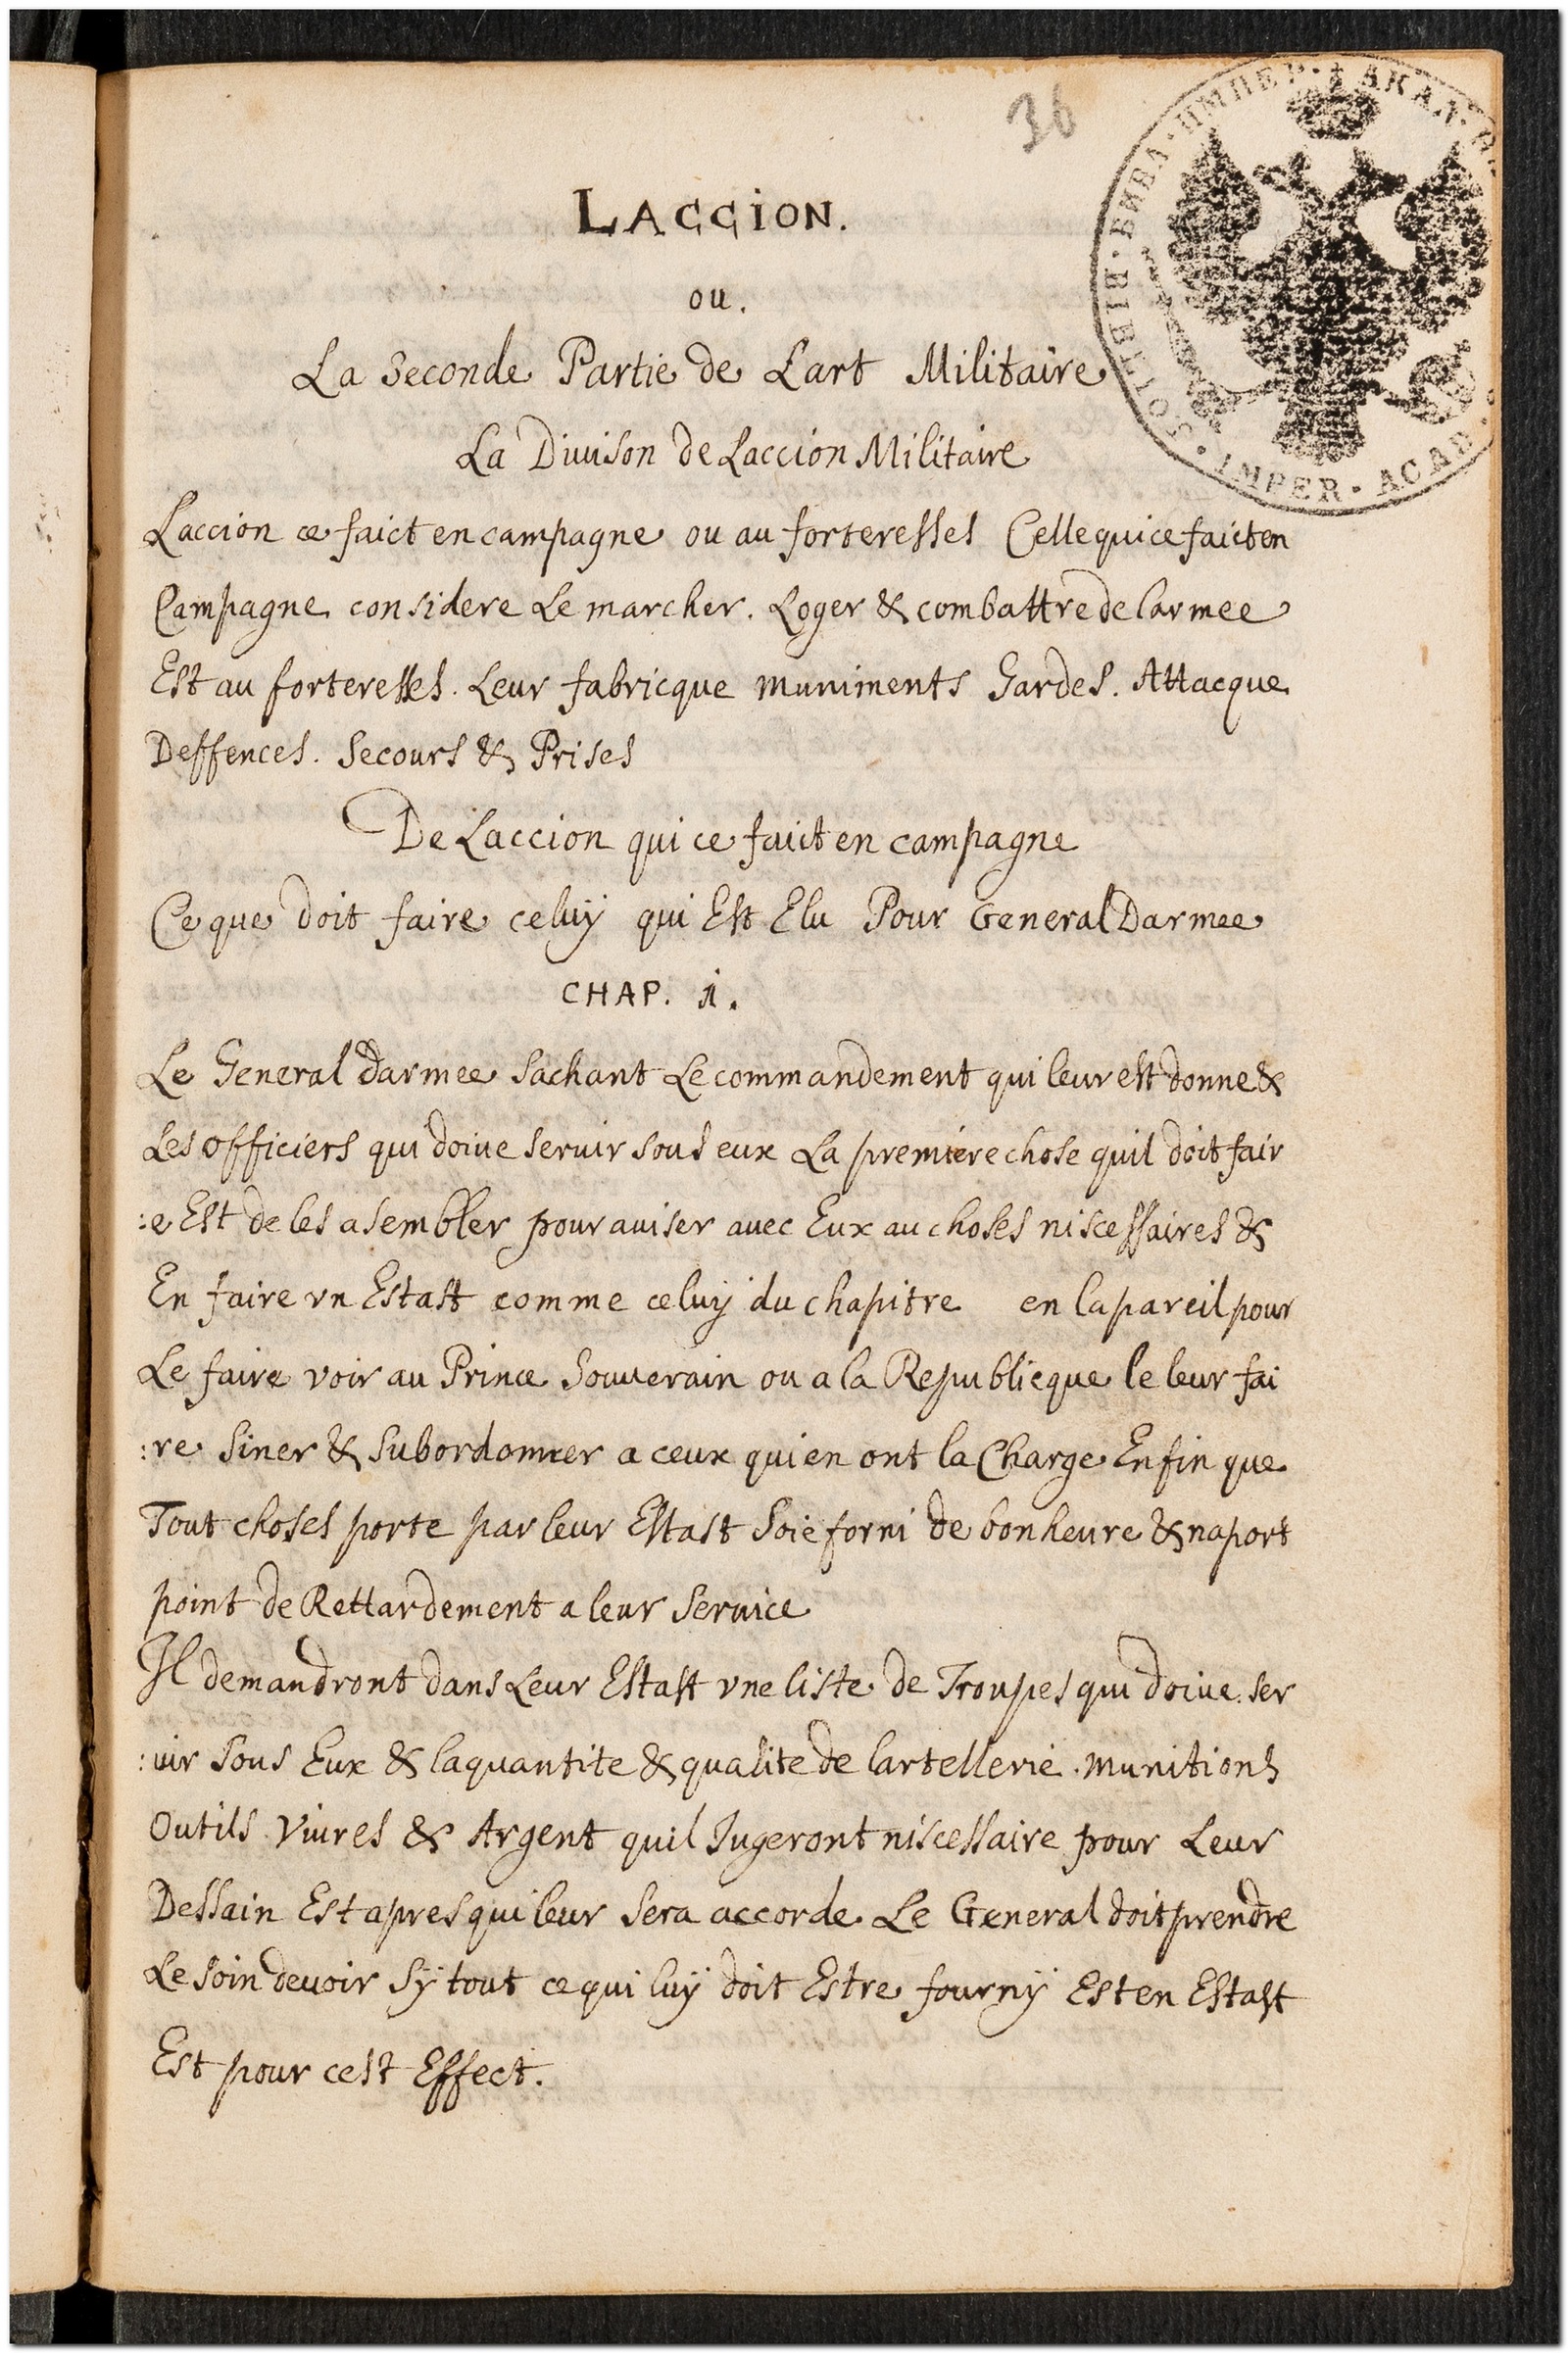 36
LACCION.
ou.
La Seconde Partie de Lart Militaire
La Diuison de Laccion Militaire
Laccion ce faict en campagne ou au forteresses Celle qui ce faict en
Campagne considere Le marcher. Loger & combattre de larmee
Est au forteresses. Leur fabricque muniments Gardes. Attacque
Deffences. Secours & Prises
De Laccion qui ce faict en campagne
Ce que doit faire celuÿ qui Est Elu Pour General Darmee
CHAP. 1.
Le General darmee Sachant Le commandement qui leur est donne &
Les officiers qui doiue seruir sous eux La premiere chose quil doit fair
:e Est de les asembler pour auiser auec Eux au choses niscessaires &
En faire vn Estast comme celuy du chapitre en lapareil pour
Le faire voir au Prince Souuerain ou a la Republicque le leur fai
:re Siner & Subordonner a ceux qui en ont la Charge Enfin que
Tout choses porte par leur Estast Soie forni de bonheure & naport
point de Rettardement a leur Seruice
Il demandront dans Leur Estast vne liste de Troupes qui doiue ser
:uir Sous Eux & laquantite & qualite de lartellerie. munitions
Outils Viures & Argent quil Jugeront niscessaire pour Leur
Dessain Est apres qui leur Sera accorde Le General doit prendre
Le soin deuoir Sÿ tout ce qui luÿ doit Estre fournÿ Est en Estast
Est pour cest Effect.
БИБЛІОТ · БИВЛ · ИМПЕР · АКАД ·
· IMPER · ACAD ·